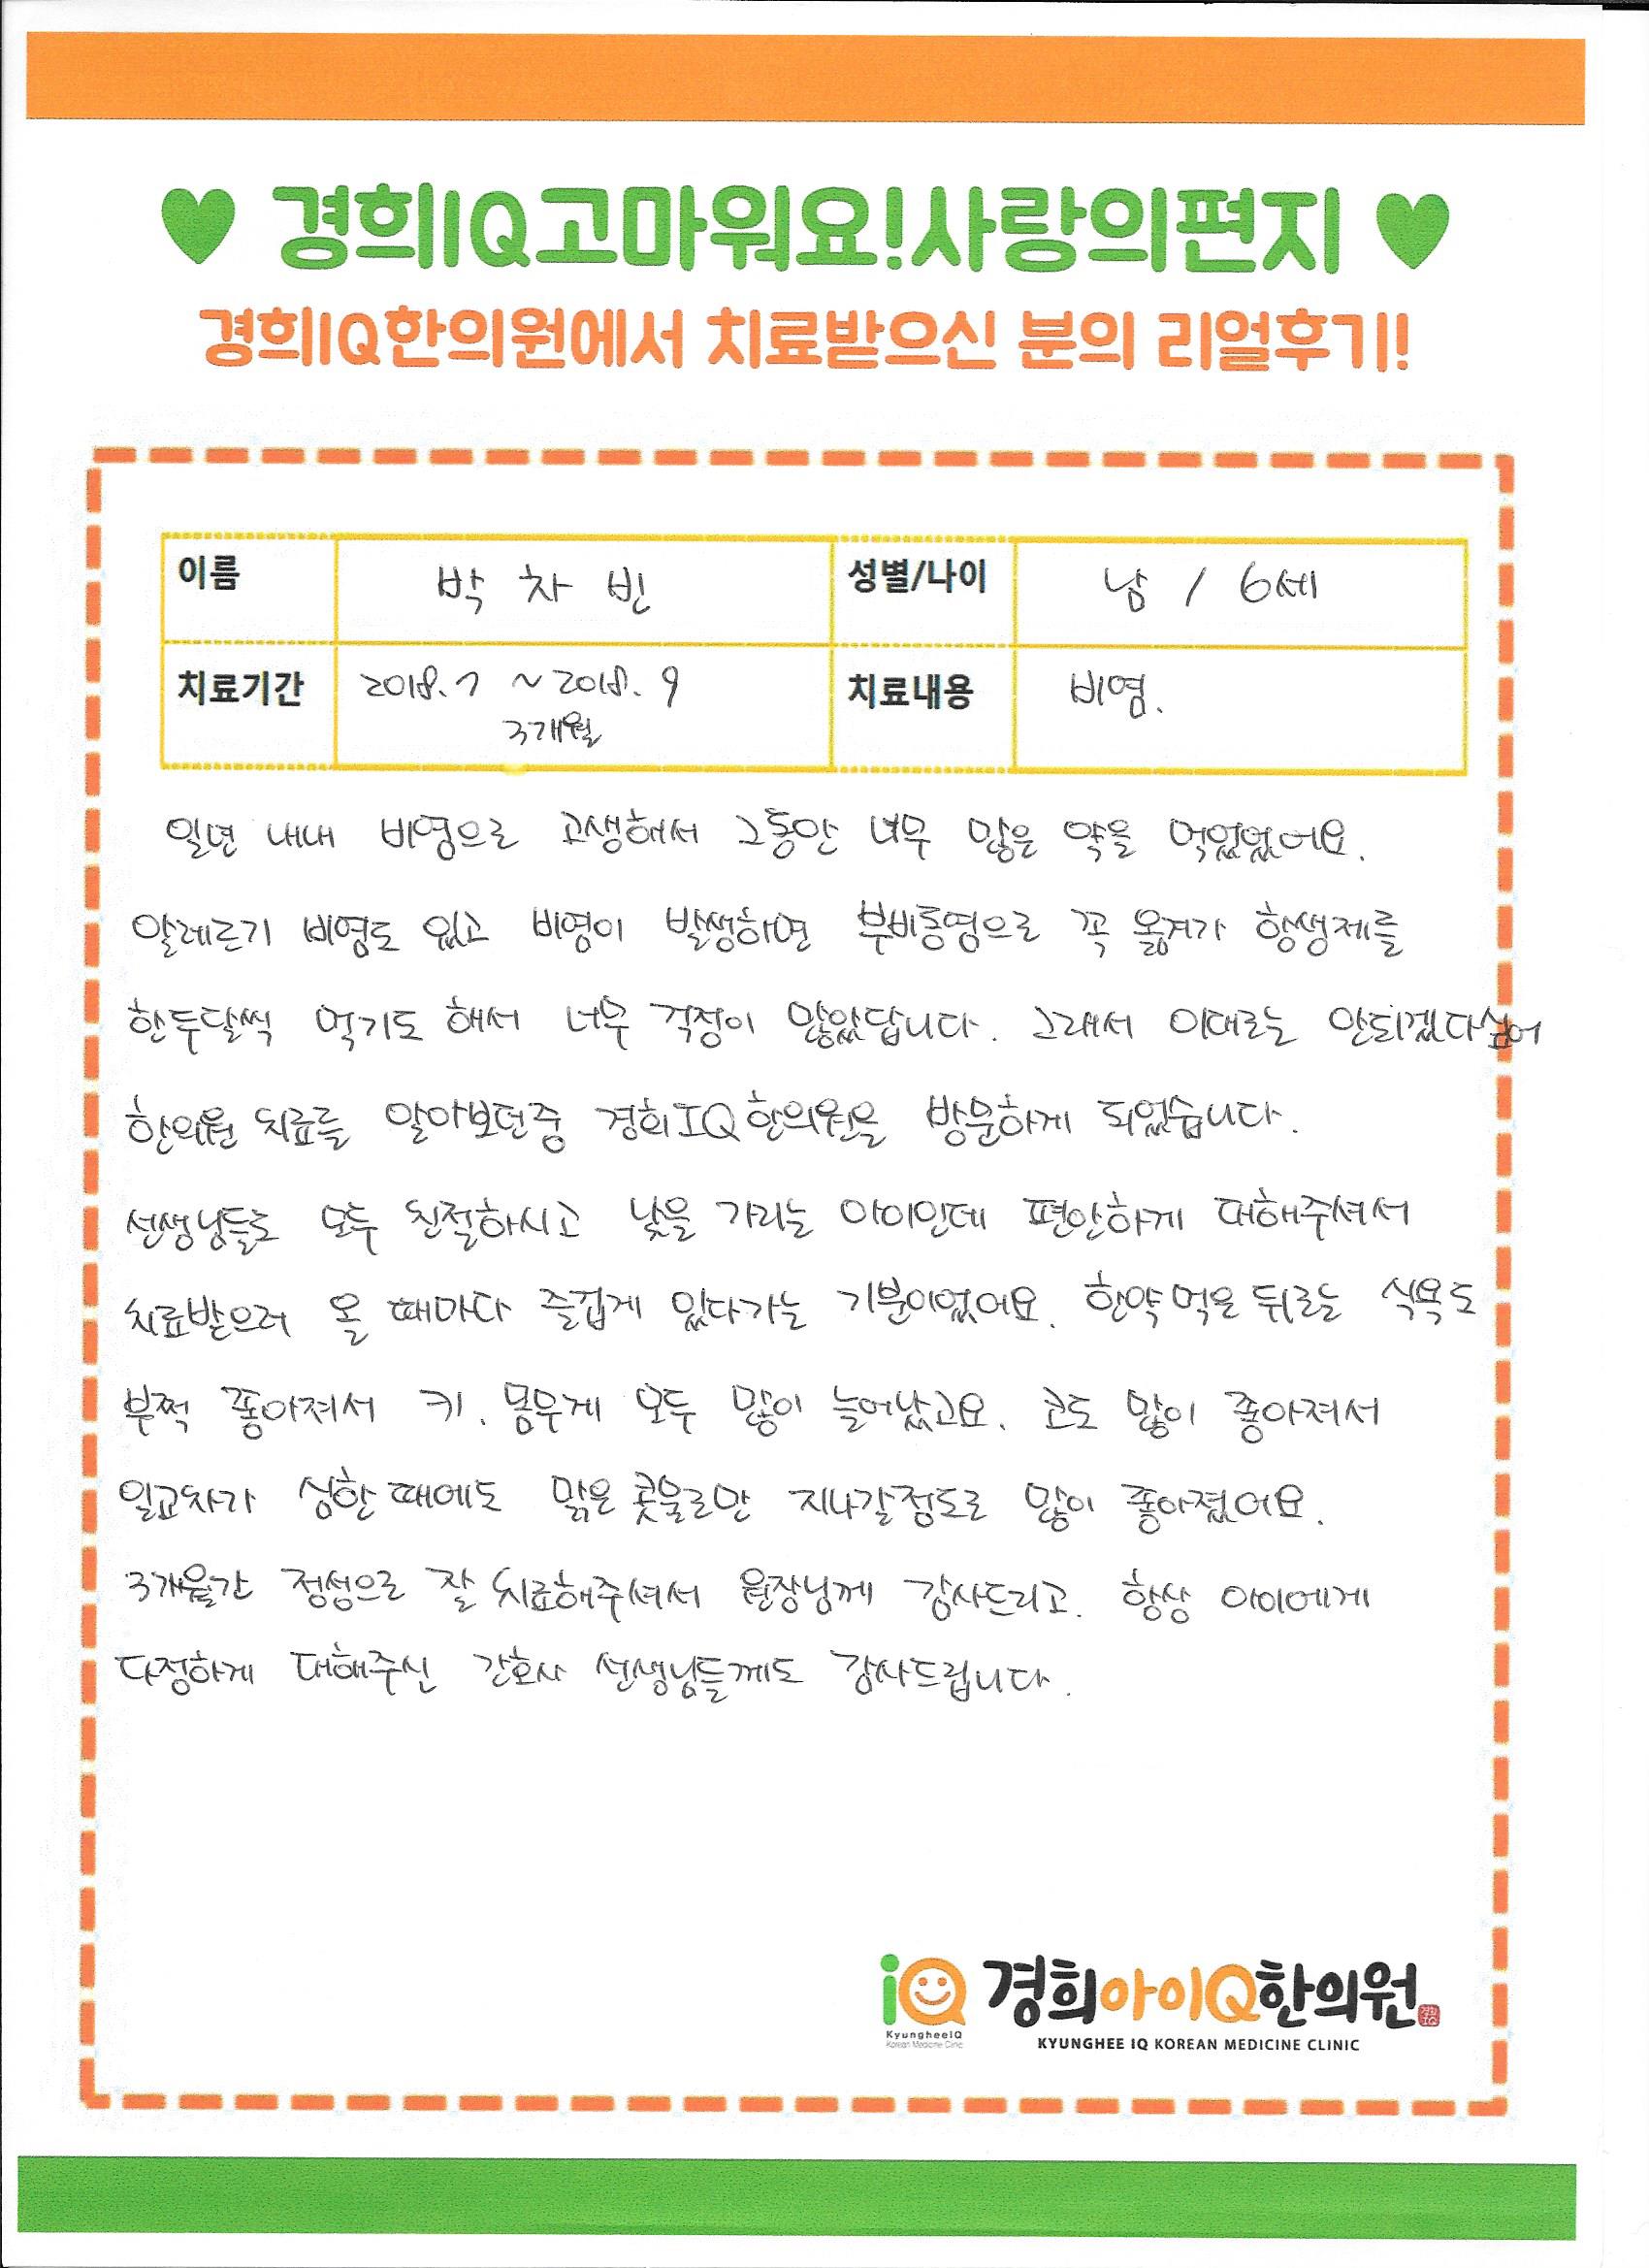 경희IQ고마워요!사랑의편지
경희IQ한의원에서 치료받으신 분의 리얼후기!
이름 박 차 빈 성별/나이 남 / 6세
치료기간 2018.7 ~ 2018.9 치료내용 비염.
3개월
일년 내내 비염으로 고생해서 그동안 너무 많은 약을 먹었었어요.
알레르기 비염도 있고 비염이 발생하면 부비동염으로 꼭 옮겨가 항생제를
한두달씩 먹기도 해서 너무 걱정이 많았답니다. 그래서 이대로는 안되겠다싶어
한의원 치료를 알아보던중 경희IQ한의원을 방문하게 되었습니다.
선생님들도 모두 친절하시고 낯을 가리는 아이인데 편안하게 대해주셔서
치료받으러 올 때마다 즐겁게 있다가는 기분이었어요. 한약 먹은 뒤로는 식욕도
부쩍 좋아져서 키. 몸무게 모두 많이 늘어났고요. 코도 많이 좋아져서
일교차가 심한 때에도 맑은 콧물로만 지나갈정도로 많이 좋아졌어요.
3개월간 정성으로 잘 치료해주셔서 원장님께 감사드리고. 항상 아이에게
다정하게 대해주신 간호사 선생님들께도 감사드립니다.
iQ 경희아이Q한의원 경희IQ
KyungheeIQ
Korean Medicine Clinic
KYUNGHEE IQ KOREAN MEDICINE CLINIC